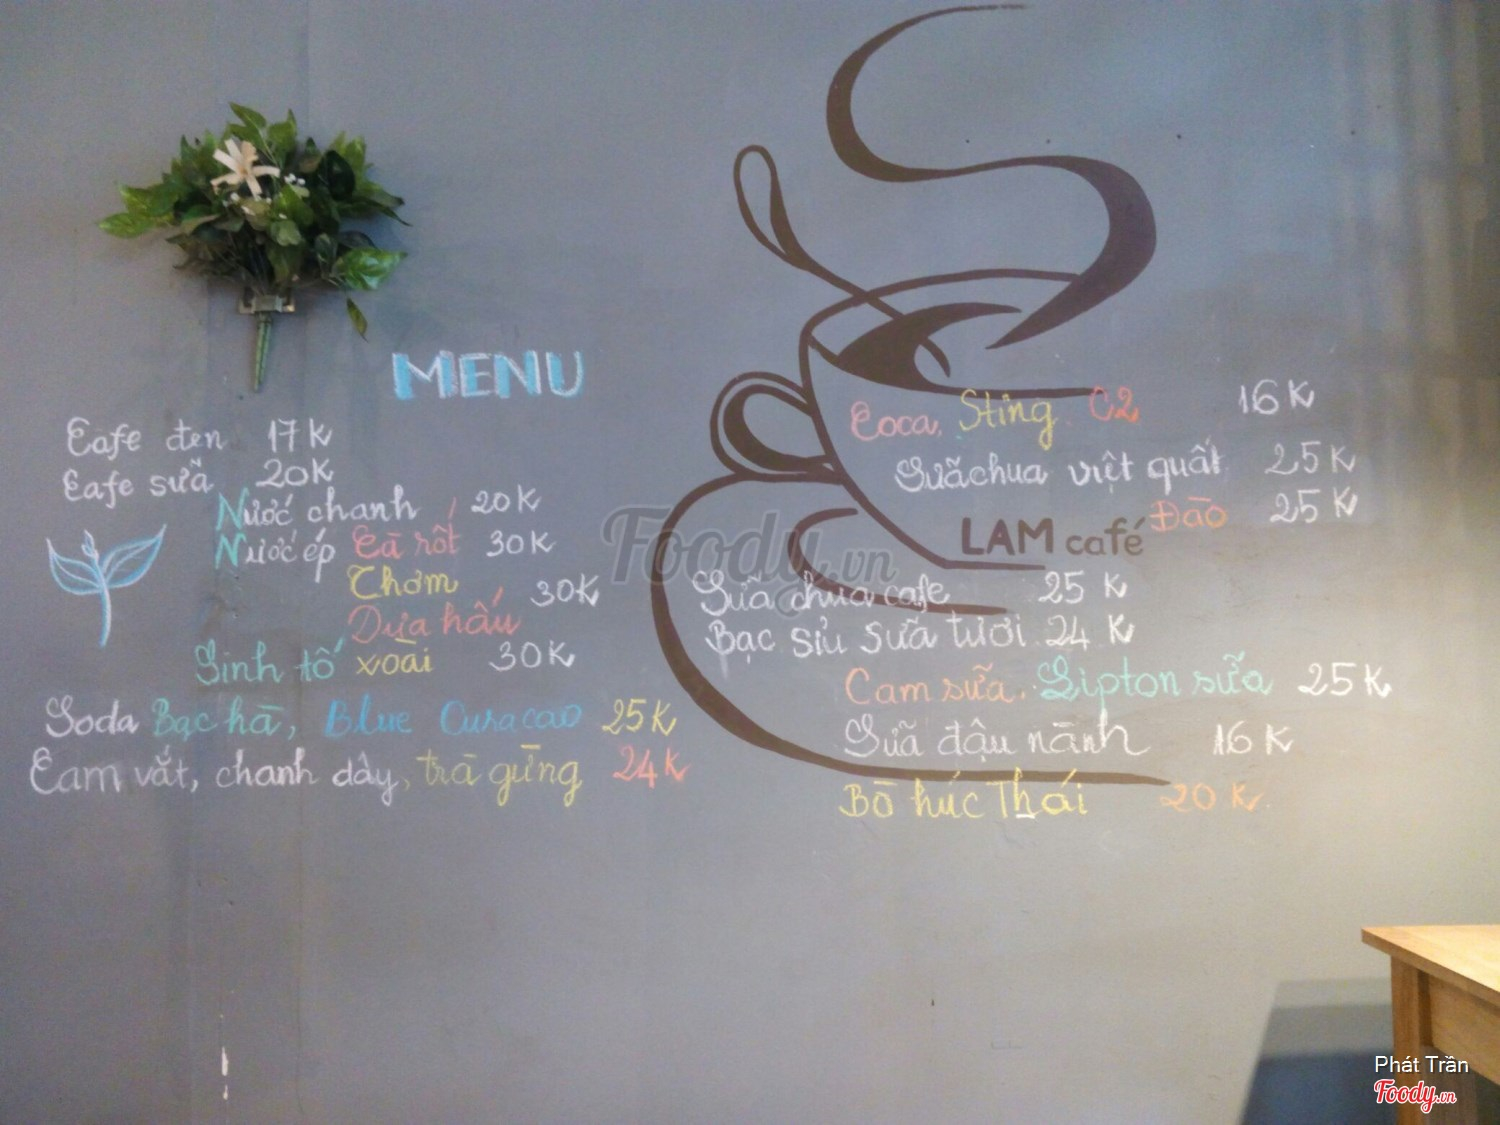 MENU
Cafe đen 17K
Cafe sữa 20K
Nước chanh 20K
Nước ép Cà rốt 30K
Thơm 30K
Dưa hấu
Sinh tố xoài 30K
Soda Bạc hà, Blue Curacao 25K
Cam vắt, chanh dây, trà gừng 24K
Coca, Sting, C2 16K
Sữa chua việt quất 25K
Đào 25K
LAM café
Sữa chua cafe 25K
Bạc sỉu sữa tươi 24K
Cam sữa, Lipton sữa 25K
Sữa đậu nành 16K
Bò húc Thái 20K
Foody.vn
Phát Trần
Foody.vn